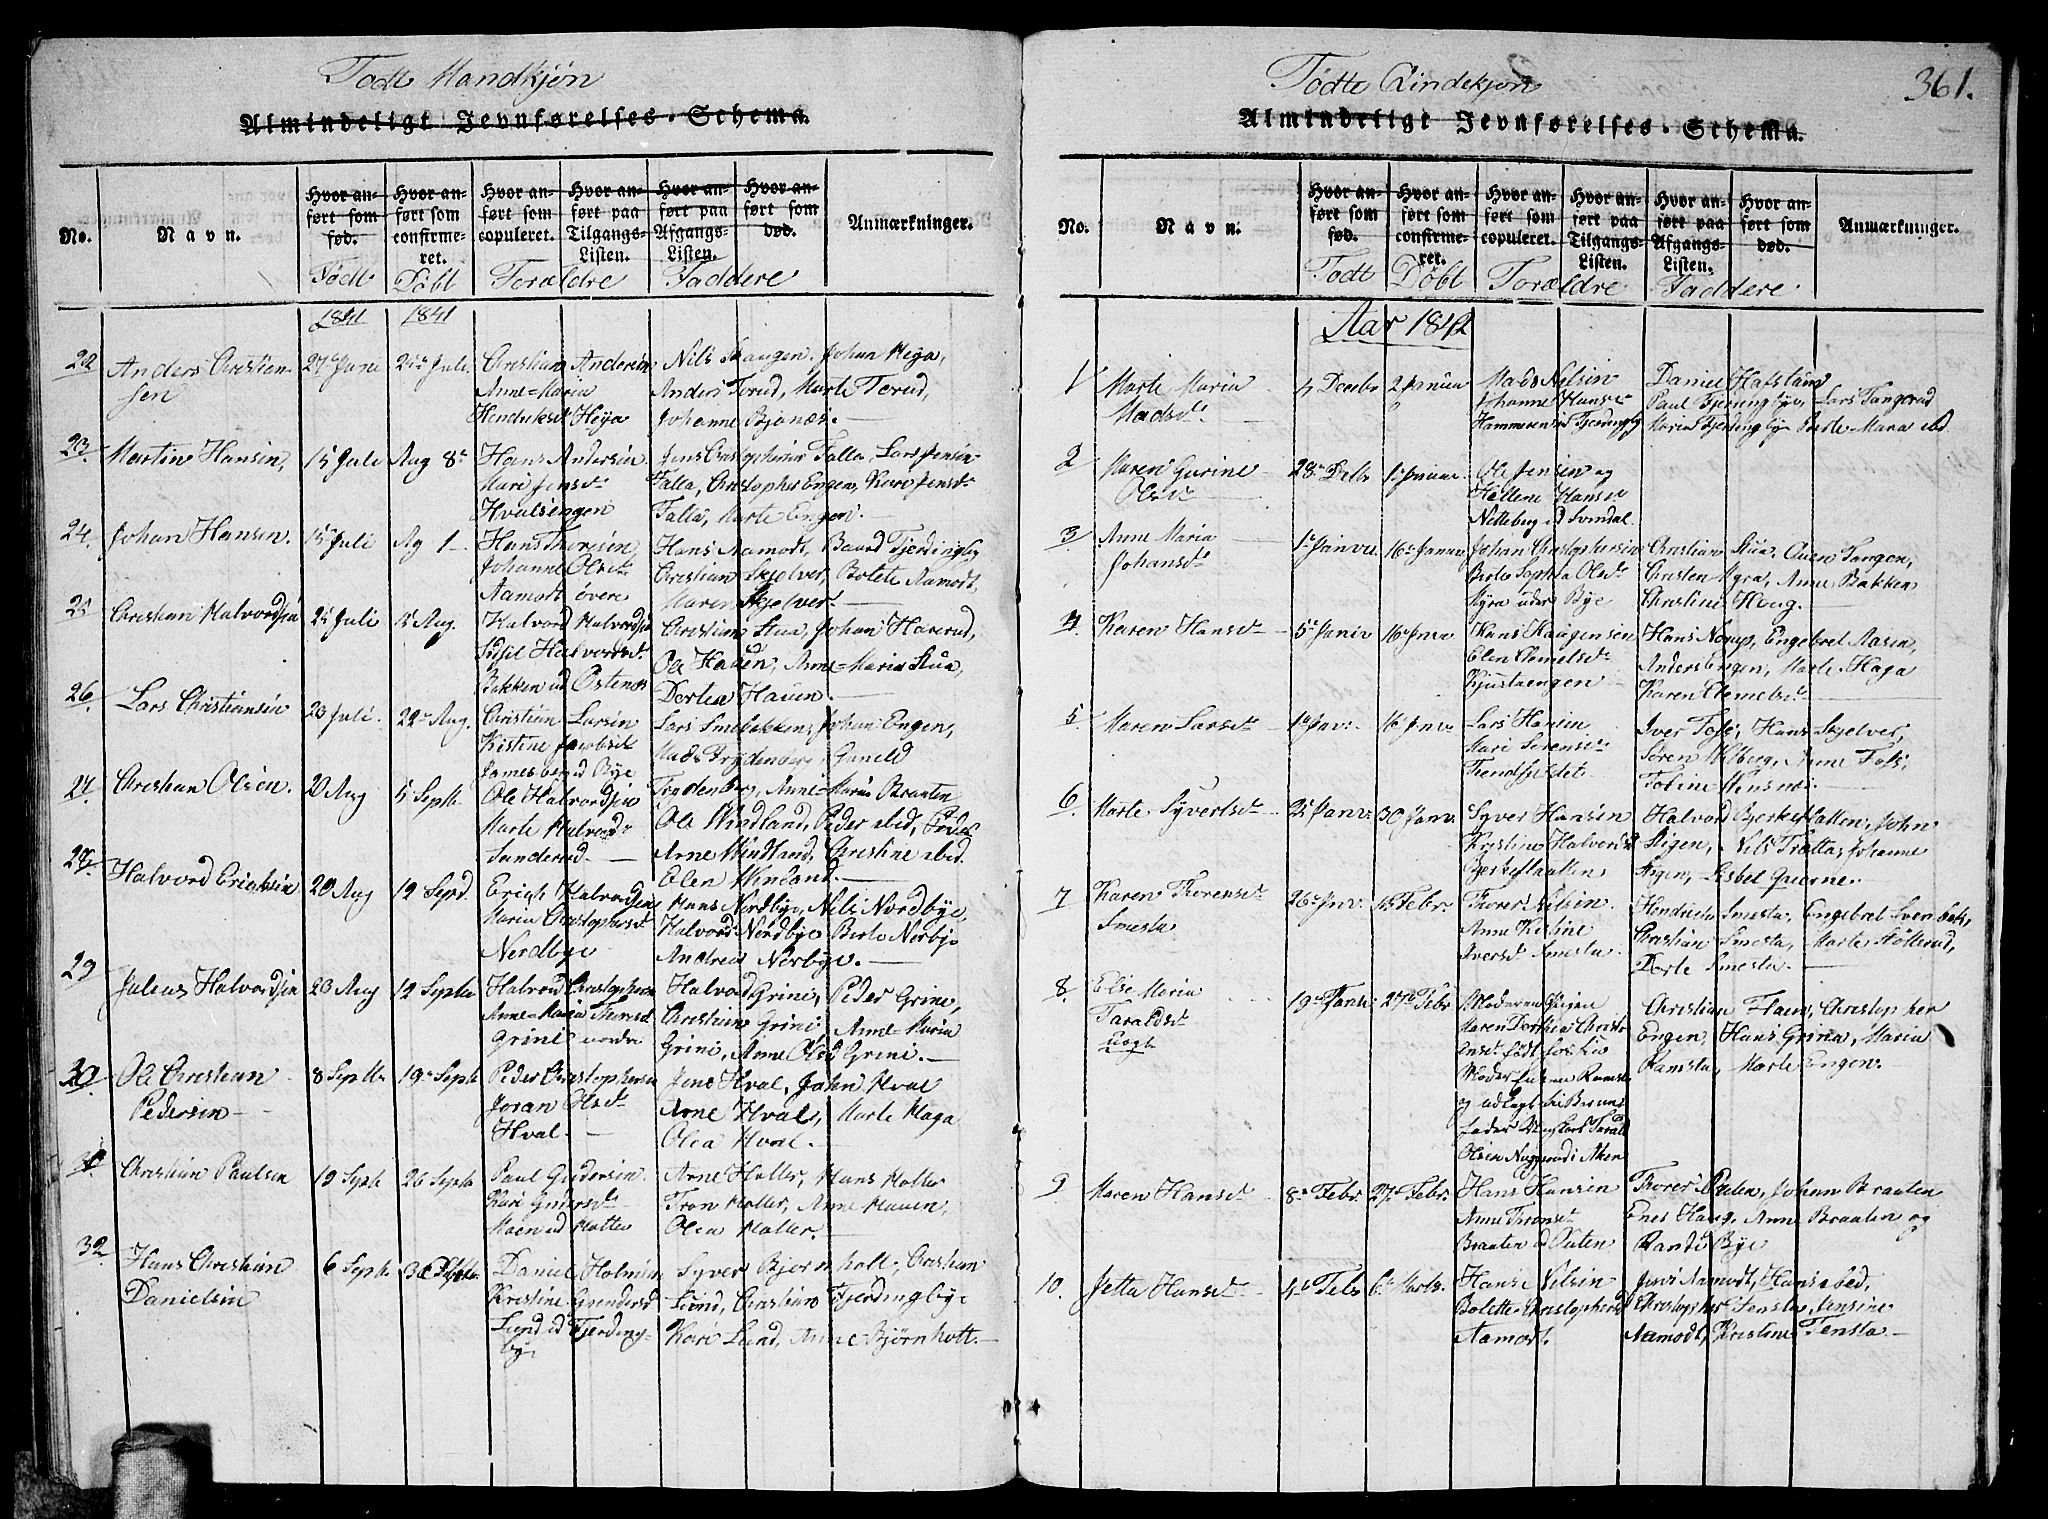 Født Mandkjøn
Almindeligt Jevnførelses-Schema.
No.
Navn.
Hvor anført som fød.
Hvor anført som confirmeret.
Hvor anført som copuleret.
Hvor anført paa Tilgangs-Listen.
Hvor anført paa Afgangs-Listen.
Hvor anført som død.
Anmærkninger.
Født Døbt Forældre Faddere
1841 1841
22 Anders Christiansen 27 Juni 25 Juli Christian Andersen
Anne Maria
Hendriksd Heya
Nils Haugen, Johan Heya,
Anders Torud, Marte Torud,
Johanne Bjonæs.
23. Martin Hansen, 15 Juli Aug 8 Hans Andersen
Mari Jensd
Hvalsengen
Jens Christophersen Falla, Lars Jensen
Falla, Christopher Engen, Kari Jensd
Falla, Marte Engen.
24. Johan Hansen. 15 Juli Ag 1 Hans Thoresen,
Johanne Olsd
Aamodt øvere
Hans Aamodt, Baard Fjerdingby
Christian Skjelver, Bolete Aamodt,
Maren Skjelver.
25 Christian Halvordsen 25 Juli 15 Aug. Halvord Halvordsen
Sidsil Halvordsd
Bakken ud Østenes
Christian Stua, Johan Haverud,
Ole Hauen, Anne Maria Stua,
Dortea Hauen.
26. Lars Christiansen 23 Juli 22 Aug. Christian Larsen
Kistine Jacobsd
Jamesberg ud Bye
Lars Smebakken, Johan Engen,
Mads Frydenberg, Gunild
27. Christian Olsen. 20 Aug 5 Septb. Ole Halvordsen
Marte Halvords
Sanderud.
Frydenberg, Anne Maria Braaten
Ole Windland, Peder ibid,
Arne Windland, Christine ibid.
Elen Windland.
28. Halvord Erichsen 20 Aug 12 Sept. Erich Halvordsen
Maria Christophersd
Nordbye
Hans Nordbye, Nils Nordbye,
Halvord Nordbye Berte Norbye
Andrea Norbye.
29 Julius Halvordsen 23 Aug 12 Septb Halvord Christophersen
Anne Maria Thoresd
Grini nordre
Halvord Grini, Peder Grine,
Christian Grini, Anne Maria
Grini, Anne Olsd Grini.
30. Ole Christian
Pedersen
8 Septb. 19 Septb Peder Christophersen
Joran Olsd
Hval.
Jens Hval, John Hval
Arne Hval, Marte Haga
Olea Hval.
31. Christian Paulsen 19 Septb 26 Septb Paul Gudersen
Kari Gudersd
Moen ud Holter
Arne Holter, Hans Holter
Tron Holter, Anne Hauen,
Olea Holter.
32 Hans Christian
Danielsen
6 Septb. 3 Daniel Holmsen
Kristine Gundersd
Lund ud Fjerdingbye
Syver Bjørnholt, Christian
Lund, Christian Fjerdingbye
Kari Lund, Anne Bjørnholt.
Fødte Qindekjøn 361.
Almindeligt Jevnførelses-Schema.
No.
Navn.
Hvor anført som fød.
Hvor anført som confirmeret.
Hvor anført som copuleret.
Hvor anført paa Tilgangs-Listen.
Hvor anført paa Afgangs-Listen.
Hvor anført som død.
Anmærkninger.
Født Døbt Forældre Faddere
Aar 1842
1 Marte Maria
Madsd
4 Decbr 2 Januar Mads Nelsen
Johanne Hansd
Hammeren ud Fjerdingby
Daniel Hafstam
Paul Fjerdingbye, Lars Tangerud
Maria Fjerdingby Berte Maria ibd
2 Maren Gurine
Olsd
28 Decb 1 Januar Ole Jensen og
Hellene Hansd
Netteberg ud Svendal.
3 Anne Maria
Johansd
1 Januar 16 Januar Johan Christophersen
Berte Sophia Olsd
Myra under Bye
Christian Stua, Ouen Tangen,
Christen Myra, Anne Bakken
Christine Houg.
4 Karen Hansd 5 Janv 16 Janv Hans Haagensen
Elen Clemetsd
Kjustaengen
Hans Norup, Engebret Aasen,
Anders Engen, Marte Haga
Karen Clemetsd
5 Maren Larsd 1 Janv. 16 Janv Lars Hansen
Mari Sørensd
Iver Foss, Hans Skjelver,
Søren Holberg, Anne Foss,
Tobine
6 Marte Syvertsd 25 Janv. 30 Janv. Syver Hansen
Kristine Halvordsd
Halvord Bjerkeslatten, John
Stigen, Nils Trætta, Johanne
Stigen, Lisbet Querne.
7 Karen Thorensd
Smesta
26 Janv. Febr. Thorer Nilsen
Anne Kistine
Iversd Smesta.
Hendrich Smesta, Engebret Svenbek,
Christian Smesta, Marte Støtterud,
Dorte Smesta.
8 Else Maria
Taraldsd
Uægte
19 Janv 27 Febr. Moderen Pigen
Karen Dorthea Christiansd født for
Moder
og udlagt til Barnets
Fader Ungkarl Tarald
Olsen Naggerud i Aker
Christian Haen, Christopher
Engen, Hans Grina, Maria
Ramsta, Marte Engen.
9 Maren Hansd 8 Febr. 27 Febr. Hans Hansen
Anne Thronsd
Braaten ud Puten
Thorer Puten, Johan Braaten
Enes Haug, Anne Braaten og
Randi Bye
10. Jetta Hansd Feb 6 Marts. Hans Nilsen
Bolette Christophersd
Aamodt.
Jens Aamodt, Hans ibed,
Christopher Tensta, Jensine
Aamodt, Kristine Tensta